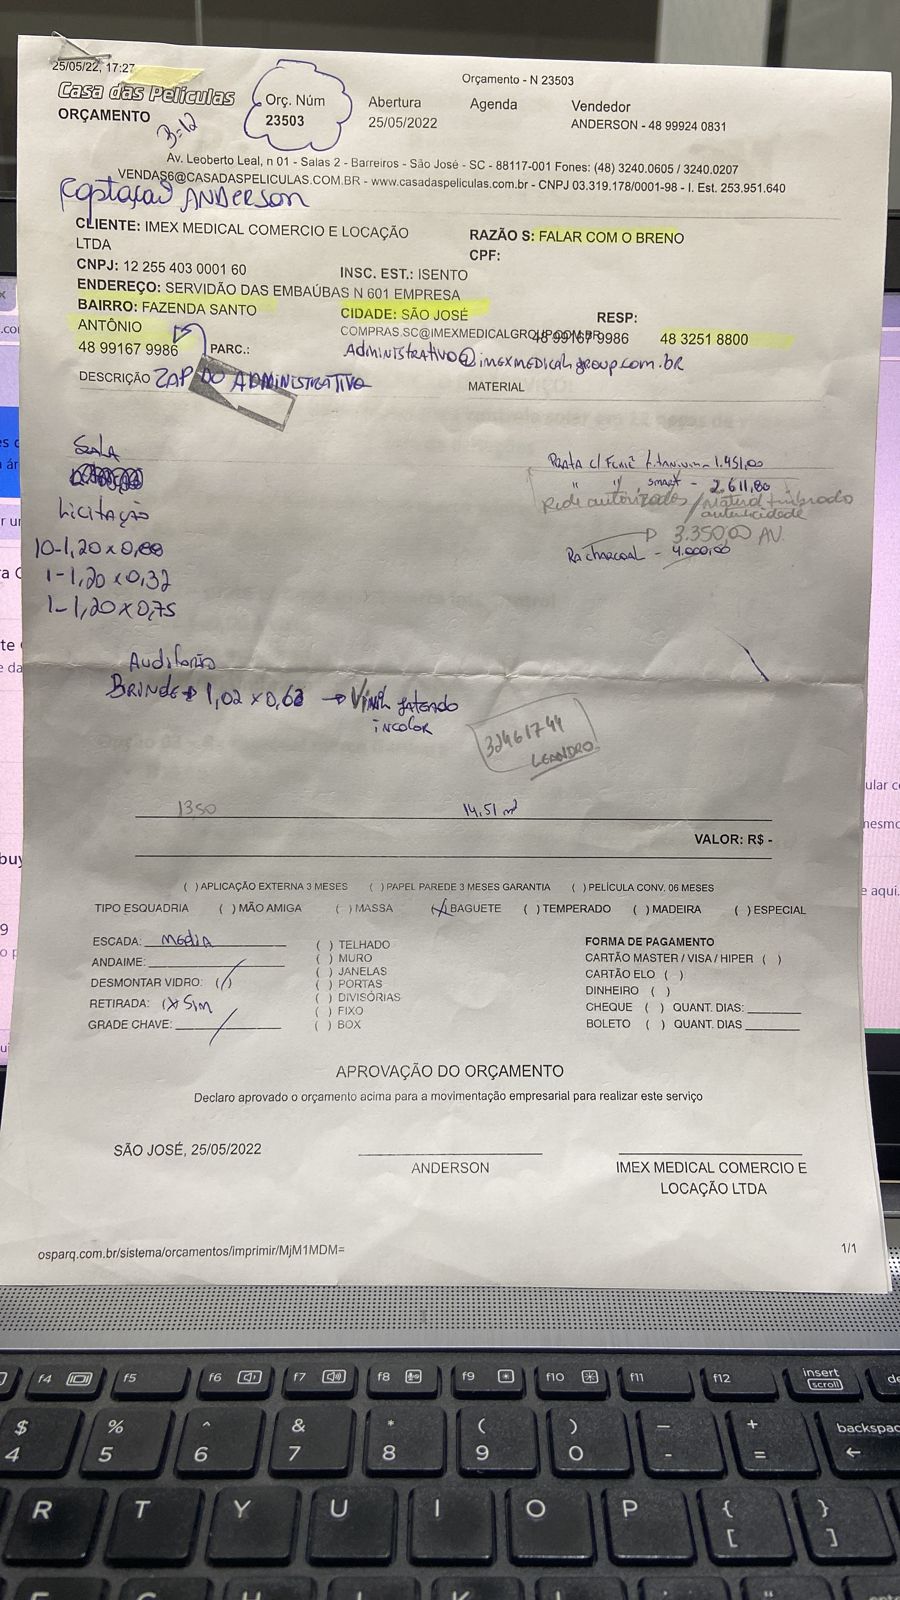 25/05/22, 17:27
Orçamento - N 23503
Casa das Películas
ORÇAMENTO
3=12
Orç. Núm
23503
Abertura
25/05/2022
Agenda
Vendedor
ANDERSON - 48 99924 0831
Av. Leoberto Leal, n 01 - Salas 2 - Barreiros - São José - SC - 88117-001 Fones: (48) 3240.0605 / 3240.0207
VENDAS6@CASADASPELICULAS.COM.BR - www.casadaspeliculas.com.br - CNPJ 03.319.178/0001-98 - I. Est. 253.951.640
Captação ANDERSON
CLIENTE: IMEX MEDICAL COMERCIO E LOCAÇÃO
LTDA
RAZÃO S: FALAR COM O BRENO
CPF:
CNPJ: 12 255 403 0001 60
INSC. EST.: ISENTO
ENDEREÇO: SERVIDÃO DAS EMBAÚBAS N 601 EMPRESA
BAIRRO: FAZENDA SANTO
ANTÔNIO
CIDADE: SÃO JOSÉ
RESP:
COMPRAS.SC@IMEXMEDICALGROUP.COM.BR
48 99167 9986
48 3251 8800
48 99167 9986
PARC.:
Administrativo@imexmedicalgroup.com.br
DESCRIÇÃO
ZAP DO ADMINISTRATIVO
MATERIAL
SALA
Licitação
10-1,20 x 0,88
1-1,20 x 0,32
1-1,20 x 0,75
PRATA c/ Fumê titanium - 1.451,00
" " smart - 2.611,80
Rede autorizados / Material timbrado
autenticidade
3.350,00 AV.
Ra charcoal - 4.000,00
Auditório
BRINDE 1,02 x 0,62 → Vinil jateado
incolor
32461744
LEANDRO
1350
14,51 m²
VALOR: R$ -
( ) APLICAÇÃO EXTERNA 3 MESES ( ) PAPEL PAREDE 3 MESES GARANTIA ( ) PELÍCULA CONV. 06 MESES
TIPO ESQUADRIA ( ) MÃO AMIGA ( ) MASSA (X) BAGUETE ( ) TEMPERADO ( ) MADEIRA ( ) ESPECIAL
ESCADA: MEDIA
ANDAIME:
DESMONTAR VIDRO: (/)
RETIRADA: (X SIM
GRADE CHAVE:
( ) TELHADO
( ) MURO
( ) JANELAS
( ) PORTAS
( ) DIVISÓRIAS
( ) FIXO
( ) BOX
FORMA DE PAGAMENTO
CARTÃO MASTER / VISA / HIPER ( )
CARTÃO ELO ( )
DINHEIRO ( )
CHEQUE ( ) QUANT. DIAS:
BOLETO ( ) QUANT. DIAS
APROVAÇÃO DO ORÇAMENTO
Declaro aprovado o orçamento acima para a movimentação empresarial para realizar este serviço
SÃO JOSÉ, 25/05/2022
ANDERSON
IMEX MEDICAL COMERCIO E
LOCAÇÃO LTDA
osparq.com.br/sistema/orcamentos/imprimir/MjM1MDM=
1/1
f4 f5 f6 f7 f8 f9 f10 f11 f12 insert
scroll
$ % ^ & * ( ) - + backspac
4 5 6 7 8 9 0 - =
R T Y U I O P { }
[ ]